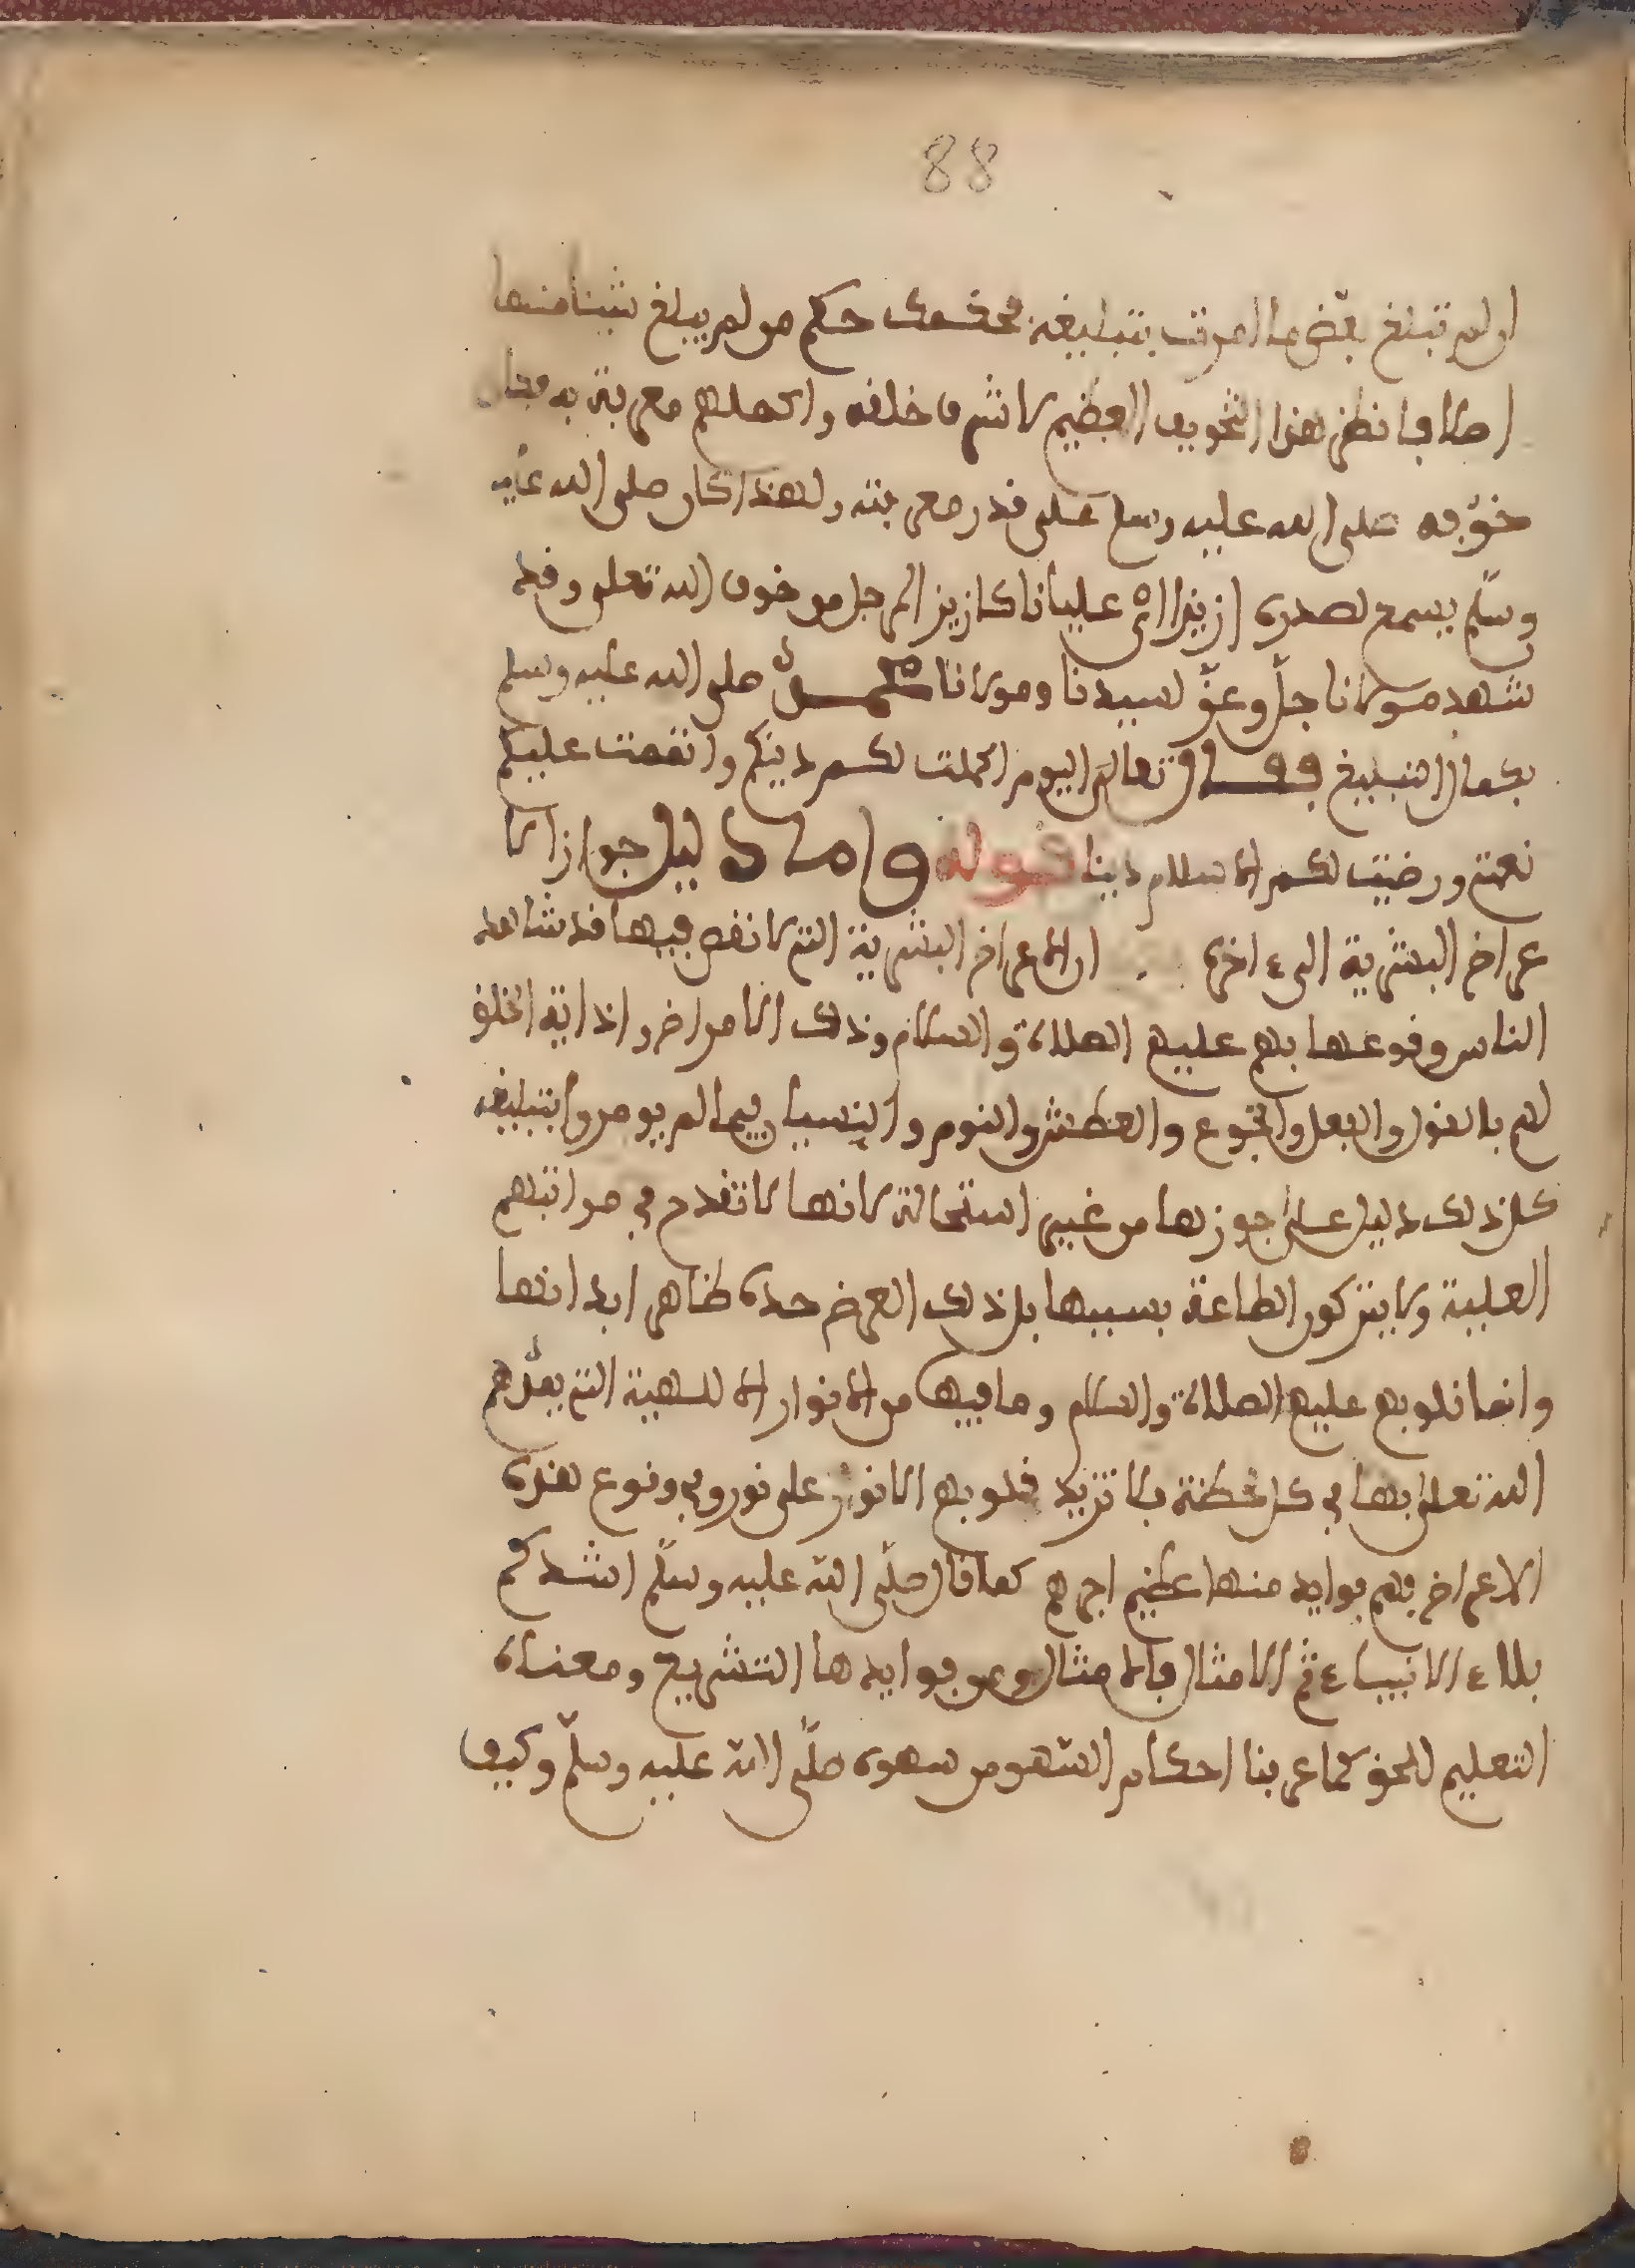 88
او لم تبلغ بعض ما امرت بتبليغه فحكمك حكم من لم يبلغ شيئا منها
اصلا فانظر هذا التخويف العظيم لاشرف خلقه واكملهم معرفة به فجاء
خوفه صلى الله عليه وسلم على قدر معرفته ولهذا كان صلى الله عليه
وسلم يسمع لصدره ازيزا اي عليانا كازيز المرجل من خوف الله تعلى وقد
شهد مولانا جل وعز لسيدنا ومولانا محمد صلى الله عليه وسلم
بكمال التبليغ فقال تعالى اليوم اكملت لكم دينكم واتممت عليكم
نعمتي ورضيت لكم الاسلام دينا قوله واما دليل جواز الا
عراض البشرية الى ءاخره ان الاعراض البشرية التي لا نقص فيها قد شاهد
الناس وقوعها بهم عليهم الصلاة والسلام وذلك الامراض واذاية الخلق
لهم بالقول والفعل والجوع والعطش والنوم والنسيان فيما لم يومروا بتبليغه
كل ذلك دليل على جوزها من غير استحالة لانها لا تقدح في مراتبهم
العلية ولا يتركون الطاعة بسببها بل ذلك العرض حده ظاهر ابدانها
وانما قلوبهم عليهم الصلاة والسلام وما فيها من الانوار الالهية التي يمدهم
الله تعلى بها في كل لحظة بلا تزيد قلوبهم الا نور على نور وفي وقوع هذه
الاعراض بهم فوايد منها عظيم اجرهم كما قال صلى الله عليه وسلم اشدكم
بلاء الانبياء ثم الامثال فالامثال ومن فوايدها التشريع ومعناه
التعليم للخلق كما عرفنا احكام السهو من سهوه صلى الله عليه وسلم وكيف